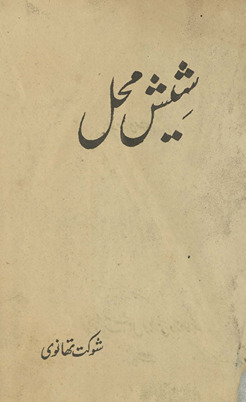 شِیش محل
شوکت تھانوی